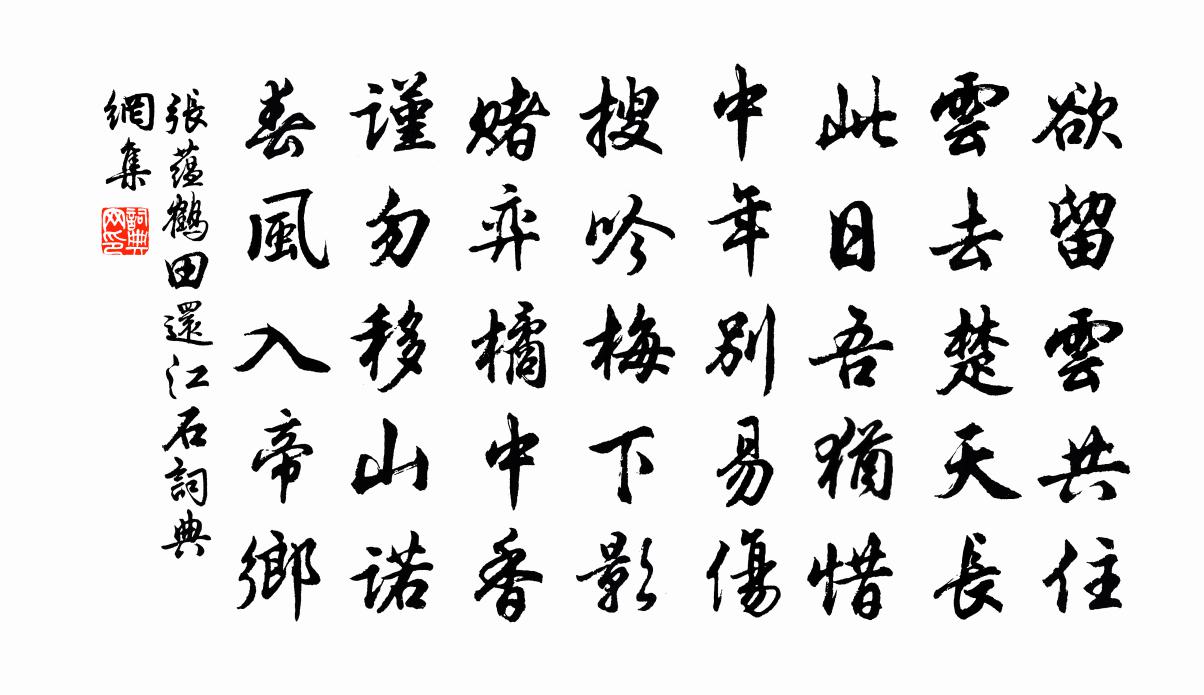 欲留雲共住
雲去楚天長
此日吾猶惜
中年別易傷
搜吟梅下影
賭弈橘中香
謹勿移山諾
春風入帝鄉
張蘊鶴田還江石詞典
網集
詞典网印